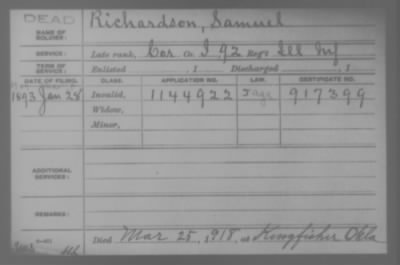 DEAD
NAME OF SOLDIER: Richardson, Samuel
SERVICE: Late rank, Cor Co. I 92 Reg't Ill Inf
TERM OF SERVICE: Enlisted , 1 Discharged , 1
DATE OF FILING. CLASS. APPLICATION NO. LAW. CERTIFICATE NO.
1893 Jan 28 Invalid, 1144922 917399
Widow,
Minor,
ADDITIONAL SERVICES:
REMARKS:
Died Mar 25, 1918, at Kingfisher Okla